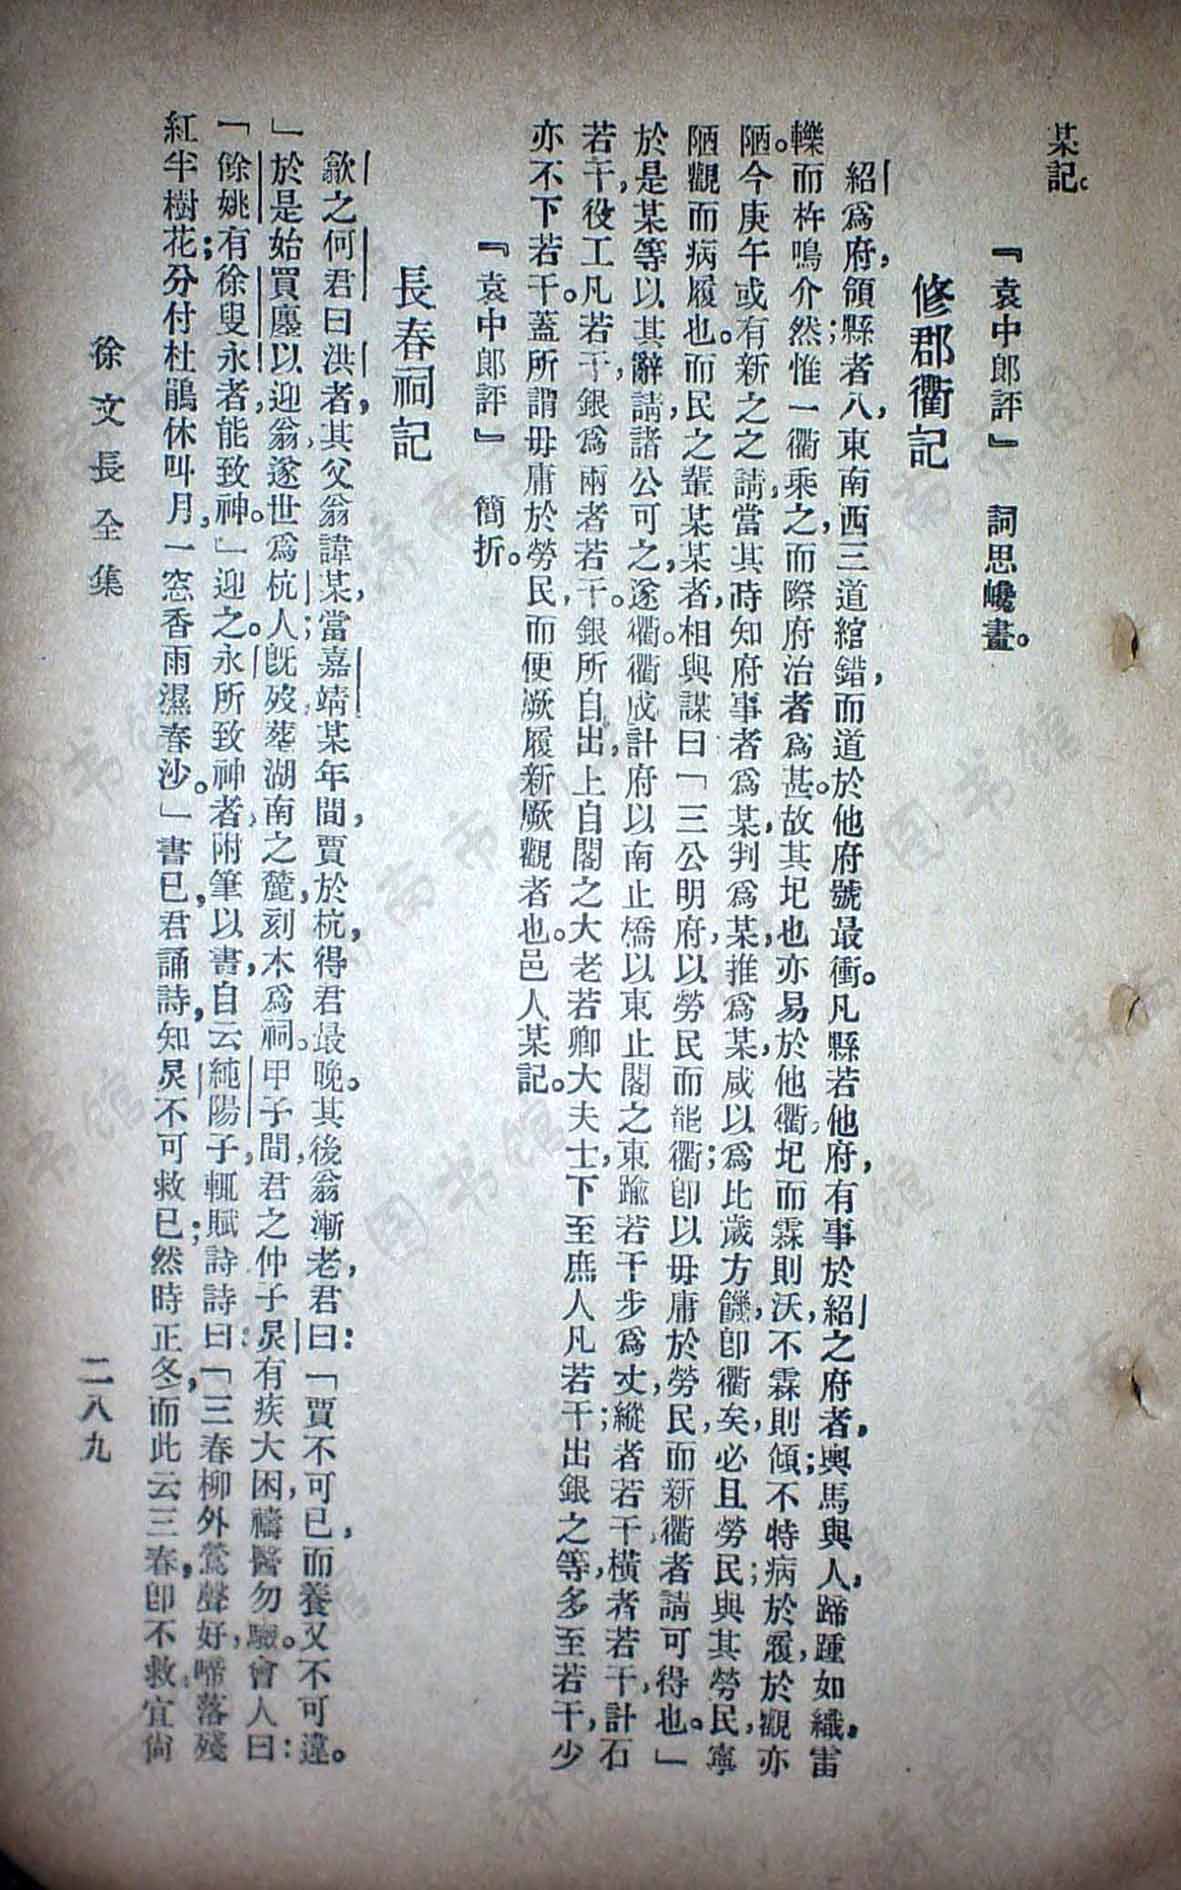 某記。
『袁中郎評』　詞思巉畫。
修郡衢記
紹爲府，領縣者八，東南西三道綰錯，而道於他府號最衝。凡縣若他府，有事於紹之府者，輿馬與人，蹄踵如織，雷
轢而杵鳴，介然惟一衢乘之，而際府治者爲甚。故其圮也亦易，於他衢圮而霖則沃，不霖則傾；不特病於履，於觀亦
陋。今庚午或有新之之請，當其時知府事者爲某，判爲某，推爲某，咸以爲比歲方饑，卽衢矣，必且勞民；與其勞民，寧
陋觀而病履也。而民之輩某某者，相與謀曰「三公明府，以勞民而能衢；卽以毋庸於勞民，而新衢者請可得也。」
於是某等以其辭，請諸公可之，遂衢。衢成，計府以南止橋，以東止閣之東，踰若干步爲丈；縱者若干，橫者若干，計石
若干，役工凡若干，銀爲兩者若干。銀所自出，上自閣之大老若卿大夫士，下至庶人凡若干，出銀之等，多至若干，少
亦不下若干。蓋所謂毋庸於勞民，而便厥履新厥觀者也。邑人某記。
『袁中郎評』　簡折。
長春祠記
歙之何君曰洪者，其父翁諱某，當嘉靖某年間，賈於杭，得君最晚。其後翁漸老，君曰：「賈不可已，而養又不可違。
」於是始買廛以迎翁，遂世爲杭人；旣歿葬湖南之麓，刻木爲祠。甲子間，君之仲子炅有疾大困，禱醫勿驗。會人曰：
「餘姚有徐叟永者，能致神。」迎之。永所致神者，附筆以書，自云純陽子，輒賦詩，詩曰：「三春柳外鶯聲好，啼落殘
紅半樹花；分付杜鵑休叫月，一窓香雨濕春沙。」書已，君誦詩，知炅不可救已；然時正冬，而此云三春，卽不救，宜尙
徐文長全集
二八九